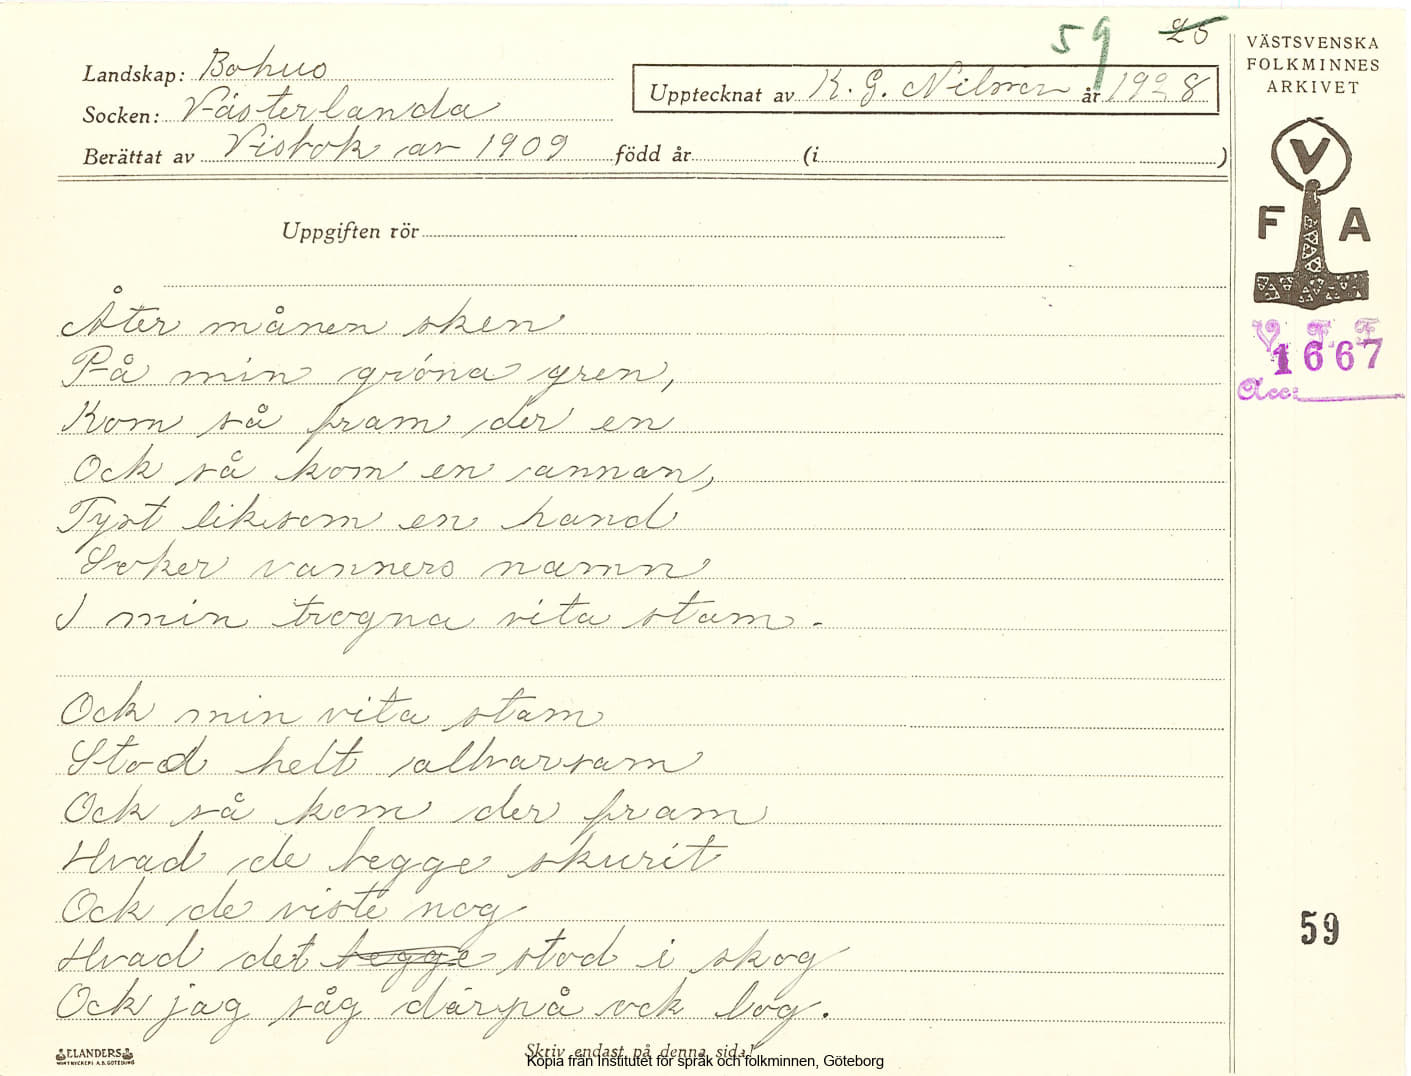 59 25
VÄSTSVENSKA
FOLKMINNES
ARKIVET
Landskap: Bohus
Socken: Västerlanda
Upptecknat av K. G. Nilson år 1928
Berättat av Visbok av 1909 född år (i )
V
F A
Uppgiften rör
V. F. F.
1667
Acc:
Åter månen sken
På min gröna gren,
Kom så fram der en
Ock så kom en annan,
Tyst liksom en hand
Soker vanners namn
I min trogna vita stam.
Ock min vita stam
Stod helt allvarsam
Ock så kom der fram
Hvad de begge skurit
Ock de viste nog
Hvad det begge stod i skog
Ock jag såg därpå ock log.
59
ELANDERS
Skriv endast på denna sida!
Kopia från Institutet för språk och folkminnen, Göteborg